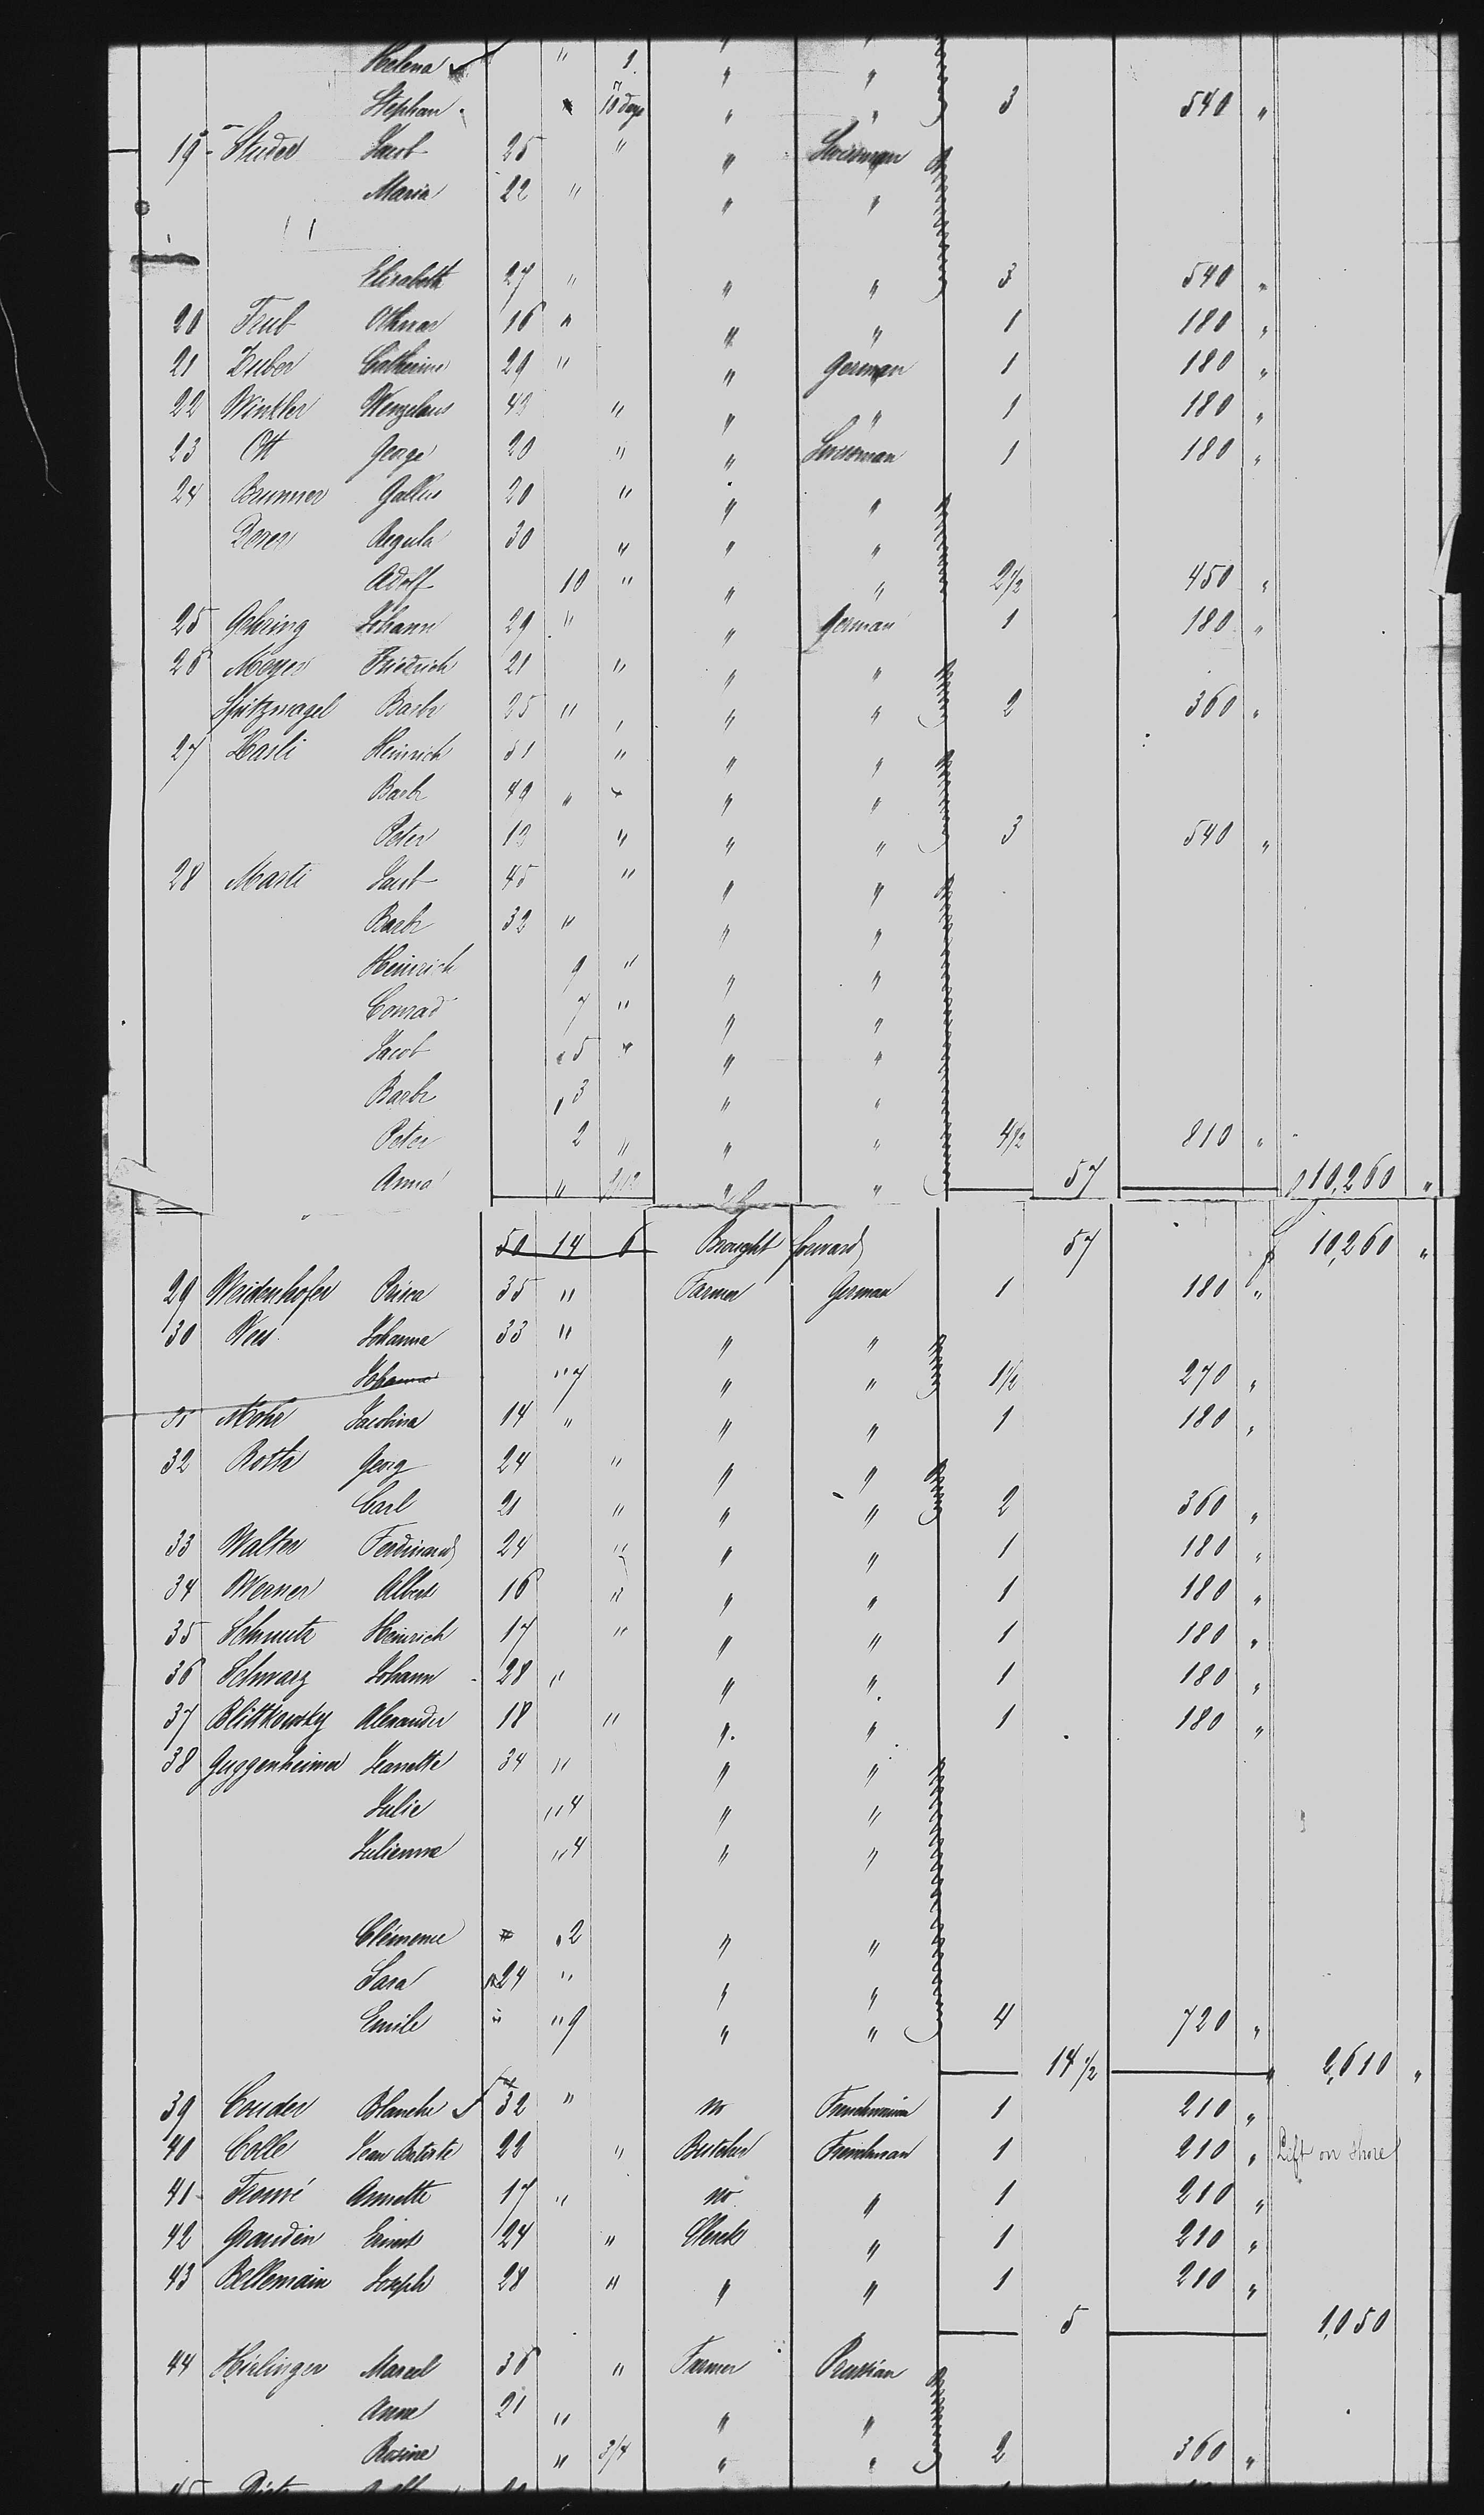 Helena " 1 " "
Stephan 10 days " " 3 540 "
19 Studer Jacob 25 " " Swissman
Maria 22 " " "
Elisabeth 27 " " " 3 540 "
20 Trub Othmar 16 " " " 1 180 "
21 Zuber Catherine 29 " " German 1 180 "
22 Winkler Wenzelaus 43 " " " 1 180 "
23 Ott George 20 " " Swissman 1 180 "
24 Brunner Gallus 20 " " "
Regula 30 " " "
Adolf 10 " " " 2 1/2 450 "
25 Gehring Johann 29 " " German 1 180 "
26 Meyer Friedrich 21 " " "
Spitznagel Barbr 25 " " " 2 360 "
27 Hasli Heinrich 51 " " "
Barbr 49 " " "
Peter 13 " " " 3 540 "
28 Marti Jacob 45 " " "
Barbr 32 " " "
Heinrich 9 " " "
Conrad 7 " " "
Jacob 5 " " "
Barbr 3 " "
Peter 2 " " " 4 1/2 810 "
Anna " " " 57 10,260 "
50 14 6 Brought forward 57 10,260 "
29 Weidenhofer Prisca 35 " Farmer German 1 180 "
30 Johanna 33 " " "
Johanna " 7 " " 1 1/2 270 "
31 Mohr Jacobina 14 " " " 1 180 "
32 Roth Georg 24 " " "
Carl 21 " " " 2 360 "
33 Walter Ferdinand 24 " " " 1 180 "
34 Werner Albert 16 " " " 1 180 "
35 Schmutz Heinrich 17 " " " 1 180 "
36 Schwarz Johann 28 " " " 1 180 "
37 Blittkowsky Alexander 18 " " " 1 180 "
38 Guggenheimer Jeanette 34 " " "
Julie " 4 " "
Julienna " 4 " "
Clémence 2 " "
Sara 24 " " "
Emile " " 9 " " 4 720 "
14 1/2 2,610 "
39 Couder Blanche 32 " no 1 210 "
40 Colle Jean Batiste 22 " Butcher Frenchman 1 210 " Left on shore
41 Annette 17 " no " 1 210 "
42 Graudin Ernest 24 " Clerk " 1 210 "
43 Bellemain Joseph 28 " " " 1 210 "
5 1,050
44 Hirlinger Marcel 36 " Farmer Prussian
Anna 21 " " "
Rosine " 3/4 " " 2 360 "